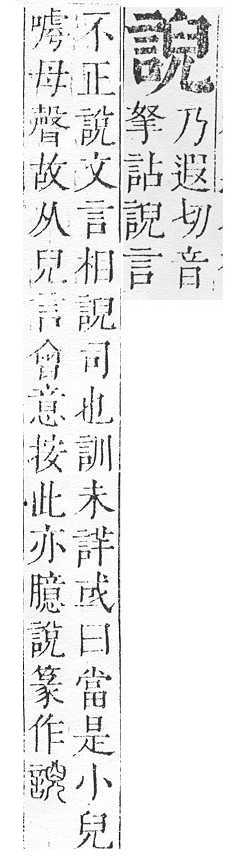 誽
乃遐切音
拏詀誽言
不正說文言相誽司也訓未詳或曰當是小兒
嘑母聲故从兒言會意按此亦臆說篆作誽